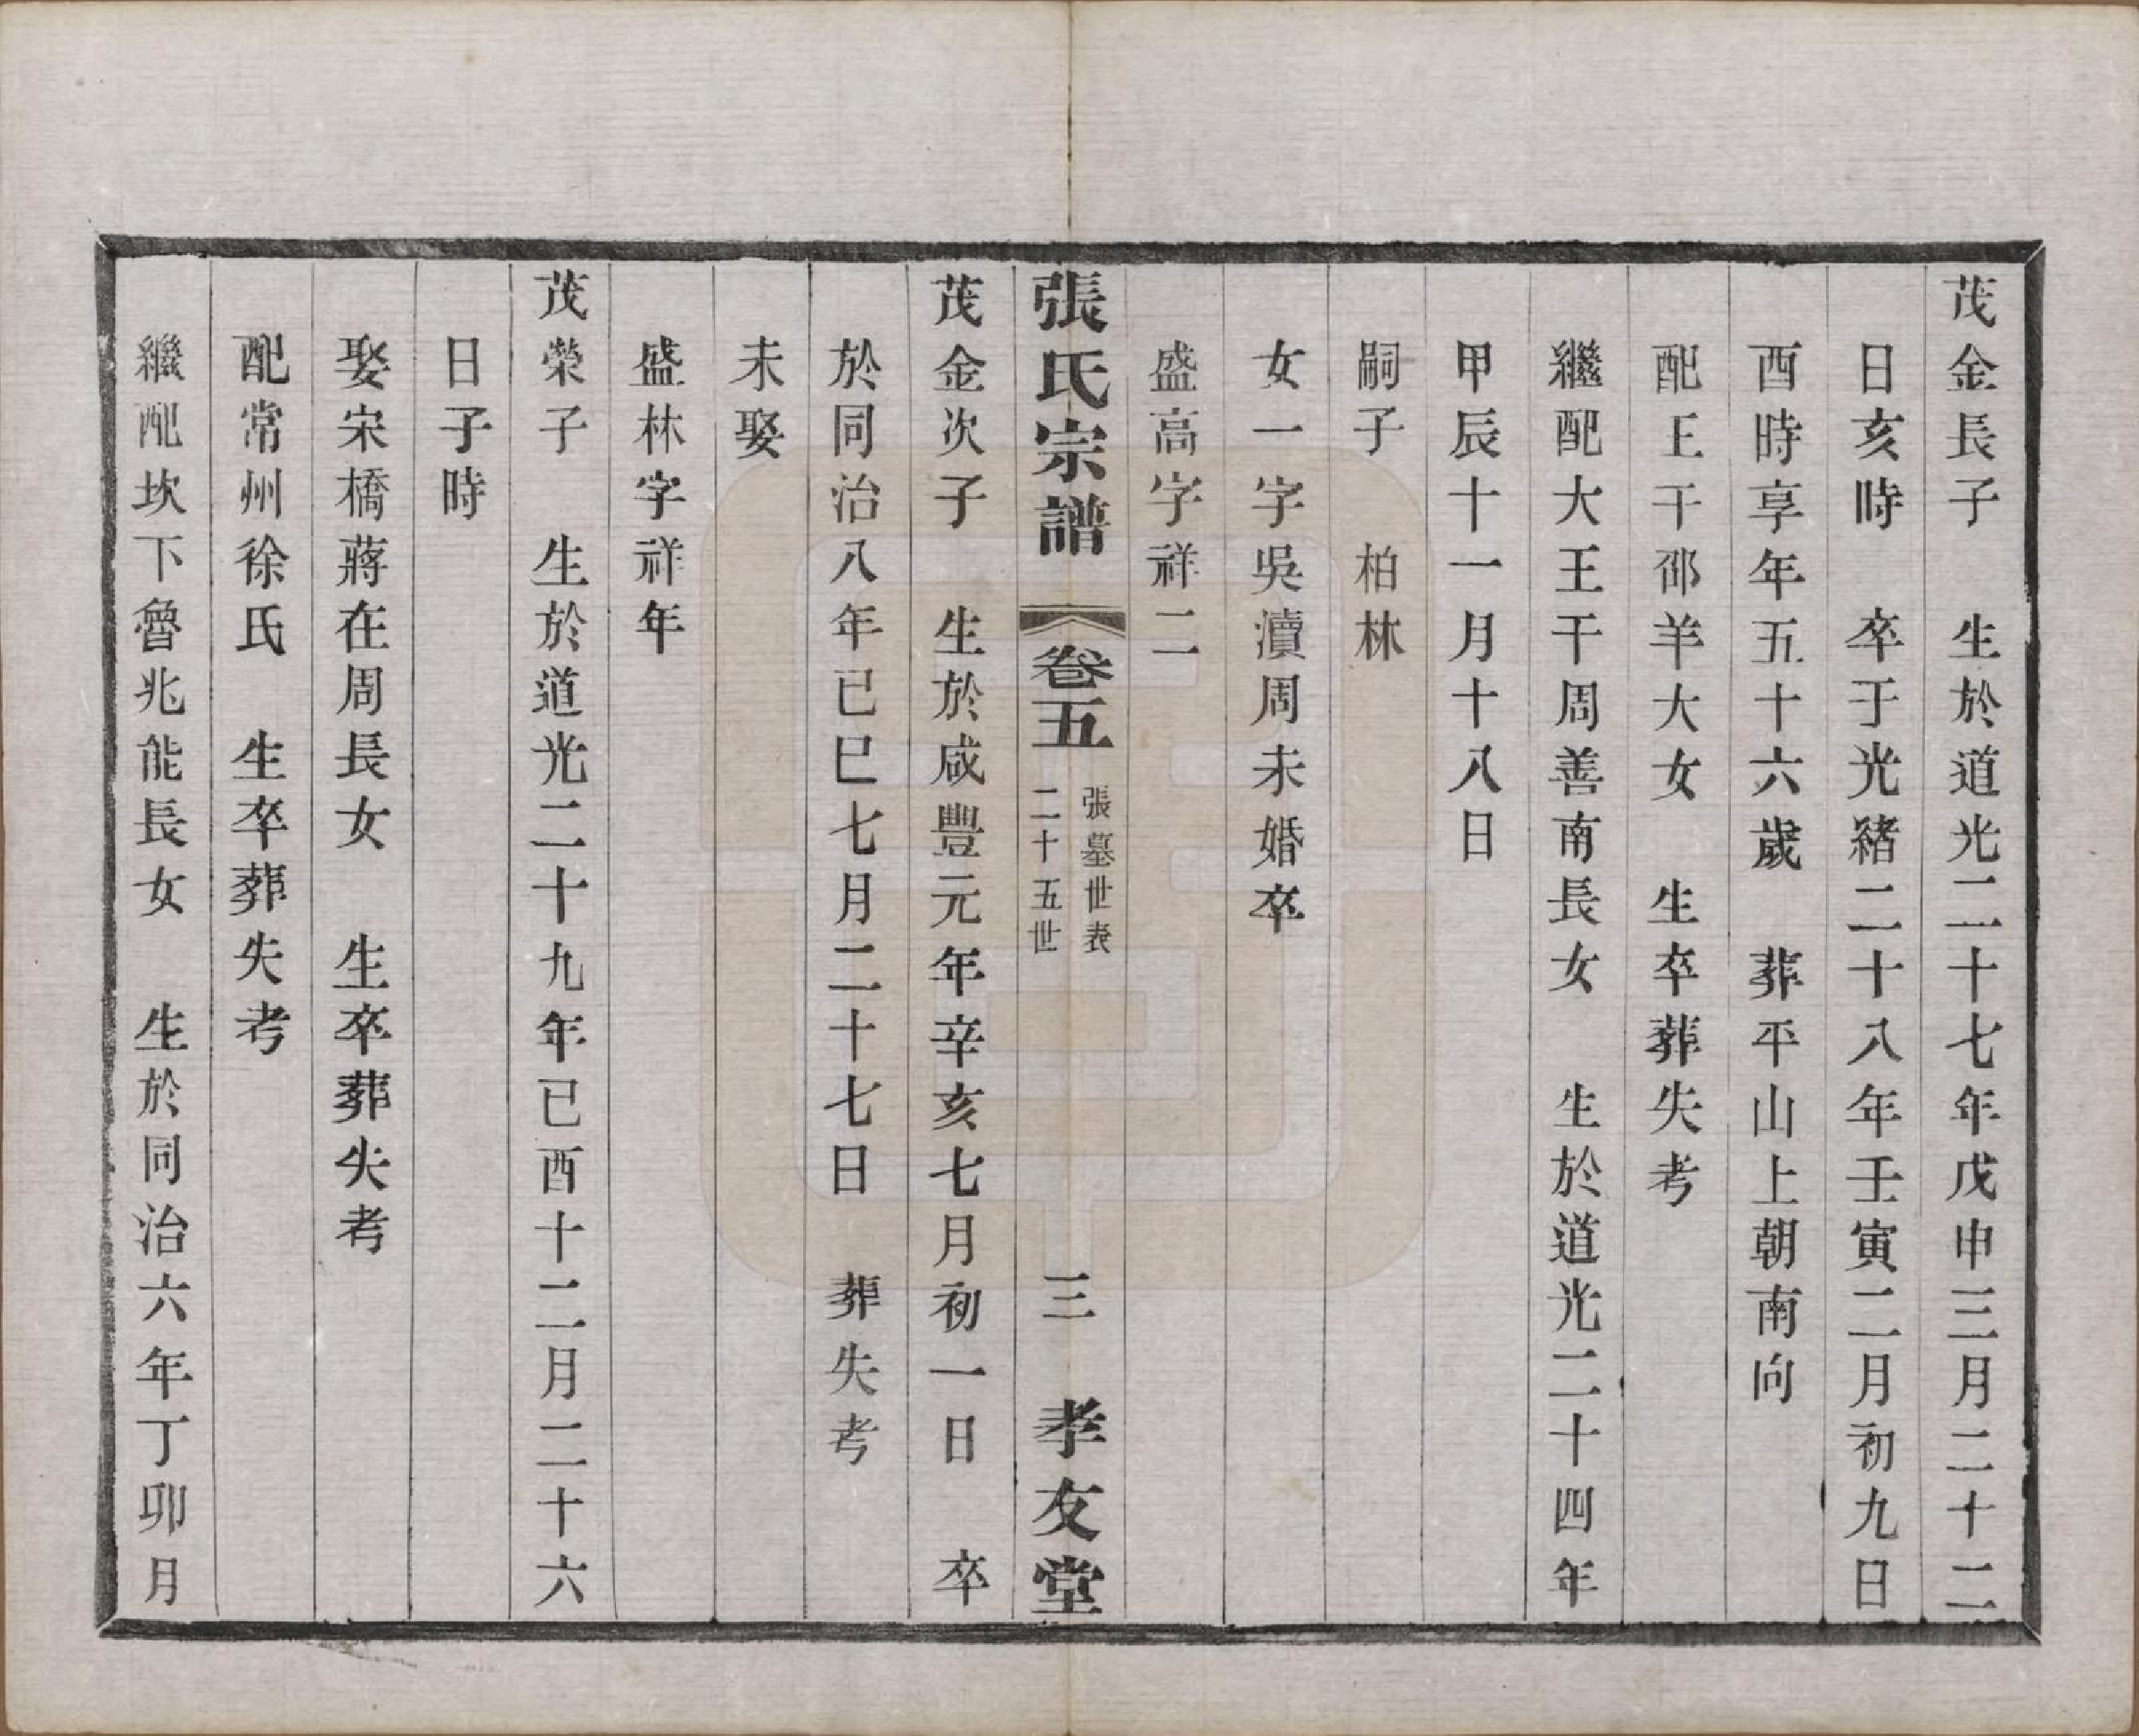 茂金長子　生於道光二十七年戊申三月二十二
日亥時　卒于光緒二十八年壬寅二月初九日
酉時享年五十六歲　葬平山上朝南向
配王干邵羊大女　生卒葬失考
繼配大王干周善南長女　生於道光二十四年
甲辰十一月十八日
嗣子　柏林
女一字吳瀆周未婚卒
盛高字祥二
張氏宗譜　卷五　張墓世表　二十五世　三　孝友堂
茂金次子　生於咸豐元年辛亥七月初一日　卒
於同治八年已巳七月二十七日　葬失考
未娶
盛林字祥年
茂榮子　生於道光二十九年已酉十二月二十六
日子時
娶宋橋蔣在周長女　生卒葬失考
配常州徐氏　生卒葬失考
繼配坎下魯兆能長女　生於同治六年丁卯月